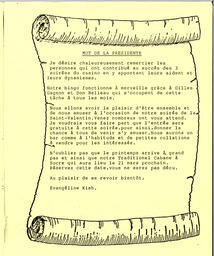 MOT DE LA PRESIDENTE
Je désire chaleureusement remercier les
personnes qui ont contribué au succès des 3
soirées du casino en y apportant leurs aident et
leurs dynamismes.
Notre bingo fonctionne à merveille grâce à Gilles
Gagnon et Don Belleau qui s'occupent de cette
tâche à tous les mois.
Nous allons avoir le plaisir d'être ensemble et
de nous amuser à l'occasion de notre soirée de la
Saint-Valentin. Venez nombreux vous vous attend.
Je voudrais vous faire part que l'entrée sera
gratuite à cette soirée, pour ainsi, donner la
chance à tous de venir s'y amuser. Nous aurons un
bar comme à l'habitude et de petites collations
à vendre pour les intéressés.
N'oubliez pas que le printemps arrive à grand
pas et ainsi que notre Traditionel Cabane à
Sucre qui aura lieu le 21 mars prochain.
Réservez cette date, vous ne serez pas déçu.
Au plaisir de se revoir bientôt,
Evangéline Kish.